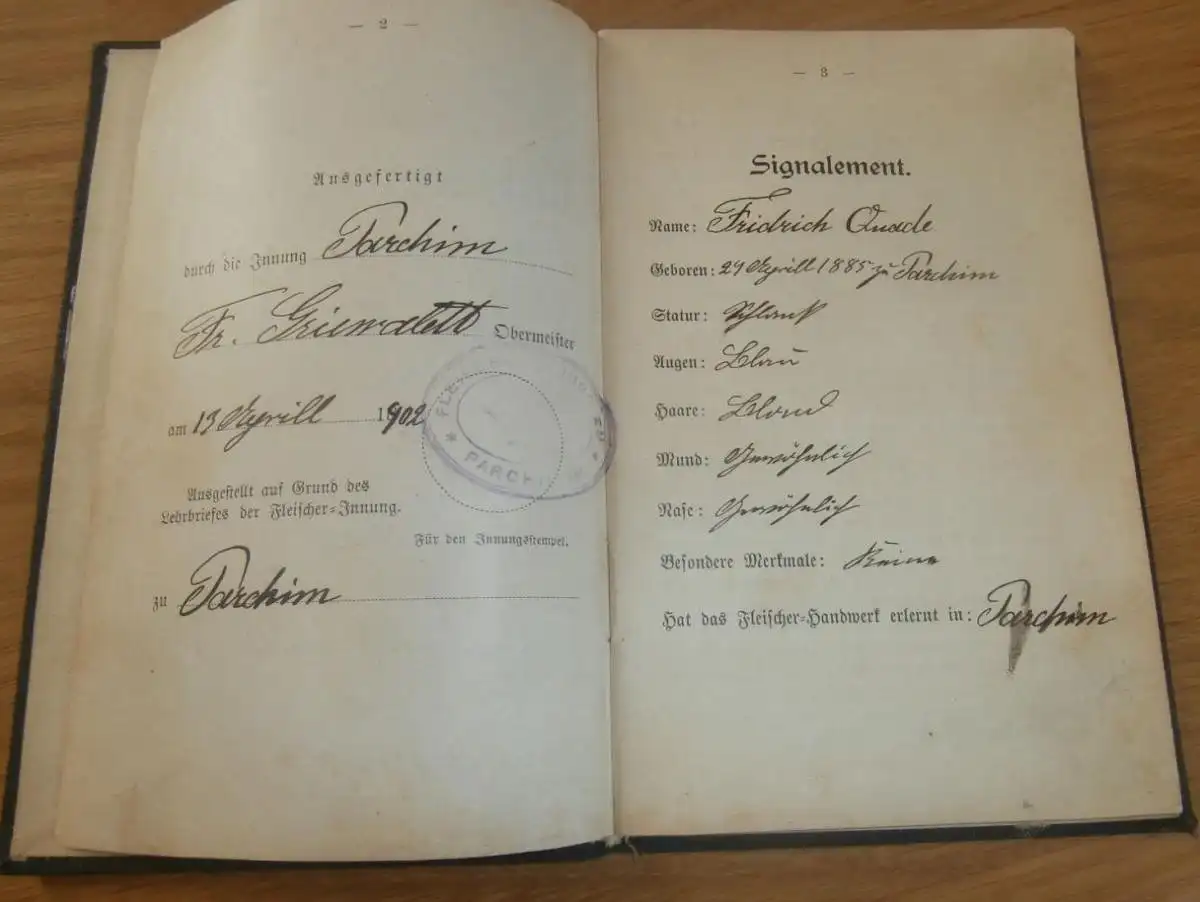 — 2 —
Ausgefertigt
durch die Innung Parchim
Fr. Obermeister
am 13 Aprill 1902
PARCHIM
Ausgestellt auf Grund des
Lehrbriefes der Fleischer-Innung.
Für den Innungsstempel.
zu Parchim
— 3 —
Signalement.
Name: Fridrich Quade
Geboren: Aprill 1885 zu Parchim
Statur: Schlank
Augen: Blau
Haare: Blond
Mund: Gewöhnlich
Nase: Gewöhnlich
Besondere Merkmale: Keine
Hat das Fleischer-Handwerk erlernt in: Parchim